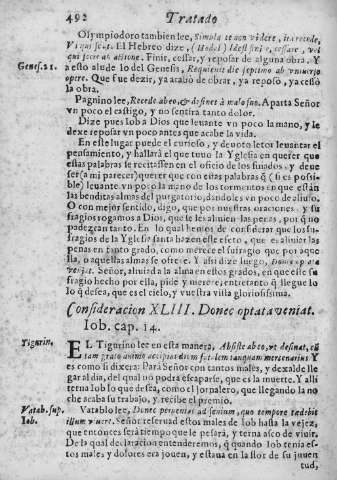 492 Tratado
Olympiodoro tambien lee, Simula te non videre, ita recedo,
Vt qui sunt. El Hebreo dize, (Hadal) idest sini, cessare, vel
qui facere ab actione. Finir, cessar, y reposar de alguna obra. Y
Genes. 21. a esto alude lo del Genesis, Requieuit die septimo ab vniuerso
opere. Que fue dezir, ya arabò de obrar, ya reposò, ya cessò
la obra.
Pagnino lee, Recede ab eo, & desinet à malo suo. Aparta Señor
vn poco el castigo, y no sentira tanto dolor.
Dize pues Iob a Dios que leuante vn poco la mano, y le
dexe reposar vn poco antes que acabe la vida.
En este lugar puede el curioso, y deuoto letor leuantar el
pensamiento, y hallarà el que tuuo la Yglesia en querer que
estas palabras se recitassen en el oficio de los finados, y deue
ser (a mi parecer) querer que con estas palabras q̃ (si es possi
ble) leuante vn poco la mano de los tormentos en que están
las benditas almas del purgatorio, dandoles vn poco de aliuio.
O con mejor sentido, digo, que por nuestras oraciones, y su
fragios rogamos a Dios, que se les aliuien las penas, por q̃ no
padezcan tanto. En lo qual hemos de considerar que los su-
fragios de la Yglesia santa hazen este efeto, que es aliuiar las
penas en tanto grado, como merece el sufragio que por aque
lla, o aquellas almas se ofrece. Y assi dize luego, Donec optata
veniat. Señor, aliuiada la alma en estos grados, en que este su
fragio hecho por ella, pide y merece, entretanto q̃ llegue lo
lo q̃ desea, que es el cielo, y vuestra villa gloriosissima.
Consideracion XLIII. Donec optata veniat.
Iob. cap. 14.
Tigurin. EL Tigurino lee en esta manera, Absiste ab eo, vt desinat, cũ
tam grato animo accipias diem suum tanquam mercenarius. Y
es como si dixera: Para Señor con tantos males, y dexalde lle
gar al dia, del qual no podrà escaparse, que es la muerte. Y alli
terna Iob lo que desea, como el jornalero, que llegando la no
che acaba su trabajo, y recibe el premio.
Vatab. sup. Vatablo lee, Donec perueniat ad senium, quo tempore tædebit
Iob. illum viuere. Señor reseruad estos males de Iob hasta la vejez,
que entonces serà tiempo que le pesarà, y terna asco de viuir.
De la qual declaracion entenderemos, q̃ quando Iob tenia es-
tos males, y dolores era jouen, y estaua en la flor de su jouen
tud,